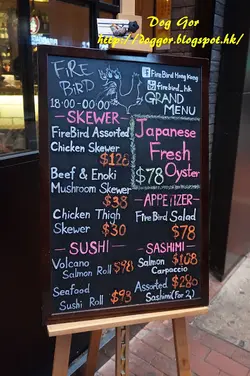 Dog Gor
http://doggor.blogspot.hk/
FIRE
BIRD
f FireBird Hong Kong
firebird_hk
18:00-00:00
GRAND
MENU
SKEWER
FireBird Assorted
Chicken Skewer
$128
Beef & Enoki
Mushroom Skewer
$38
Chicken Thigh
Skewer $30
SUSHI
Volcano
Salmon Roll $98
Seafood
Sushi Roll $93
Japanese
Fresh
$78 Oyster
APPETIZER
FireBird Salad
$78
SASHIMI
Salmon $108
Carpaccio
Assorted $280
Sashimi (For 2)